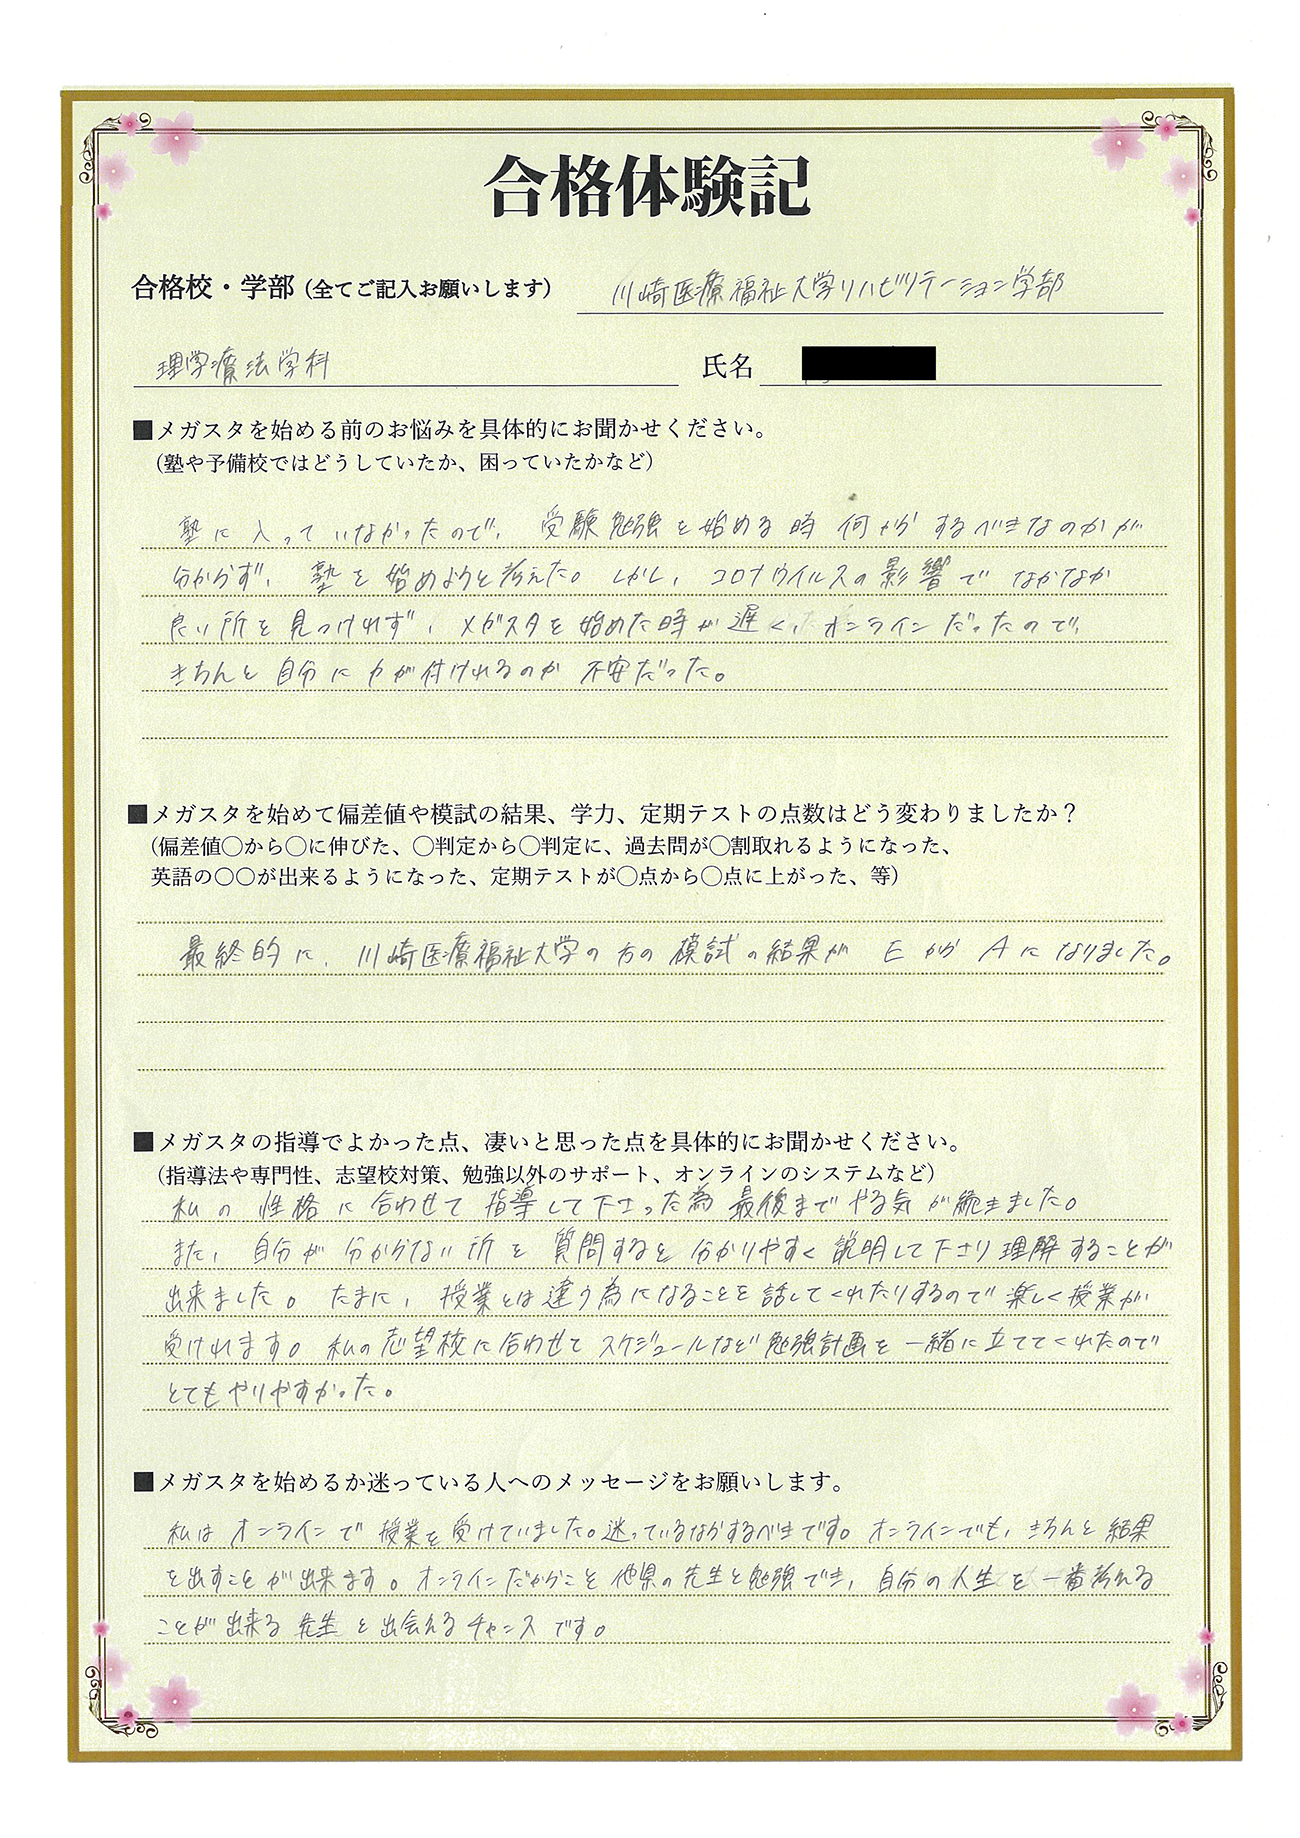 合格体験記
合格校・学部(全てご記入お願いします) 川崎医療福祉大学リハビリテーション学部
理学療法学科 氏名
■メガスタを始める前のお悩みを具体的にお聞かせください。
(塾や予備校ではどうしていたか、困っていたかなど)
塾に入っていなかったので、受験勉強を始める時何からするべきなのかが
分からず、塾を始めようと考えた。しかし、コロナウイルスの影響でなかなか
良い所を見つけれず、メガスタを始めた時が遅く、オンラインだったので、
きちんと自分に力が付けれるのか不安だった。
■メガスタを始めて偏差値や模試の結果、学力、定期テストの点数はどう変わりましたか？
(偏差値〇から〇に伸びた、〇判定から〇判定に、過去問が〇割取れるようになった、
英語の〇〇が出来るようになった、定期テストが〇点から〇点に上がった、等)
最終的に、川崎医療福祉大学の方の模試の結果がEからAになりました。
■メガスタの指導でよかった点、凄いと思った点を具体的にお聞かせください。
(指導法や専門性、志望校対策、勉強以外のサポート、オンラインのシステムなど)
私の性格に合わせて指導して下さった為最後までやる気が続きました。
また、自分が分からない所を質問すると分かりやすく説明して下さり理解することが
出来ました。たまに、授業とは違う為になることを話してくれたりするので楽しく授業が
受けれます。私の志望校に合わせてスケジュールなど勉強計画を一緒に立ててくれたので
とてもやりやすかった。
■メガスタを始めるか迷っている人へのメッセージをお願いします。
私はオンラインで授業を受けていました。迷っているならするべきです。オンラインでも、きちんと結果
を出すことが出来ます。オンラインだからこそ他県の先生と勉強でき、自分の人生を一番考える
ことが出来る先生と出会えるチャンスです。